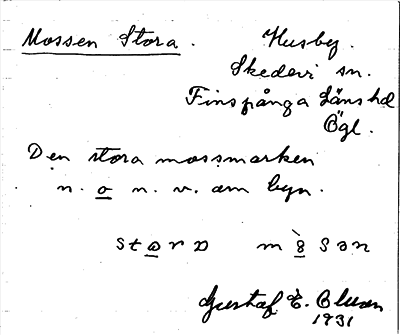 Mossen Stora. Husby.
Skedevi sn.
Finspånga Länshd
Ögl.
Den stora mossmarken
n. o n. v. om byn.
Gustaf E.
1931